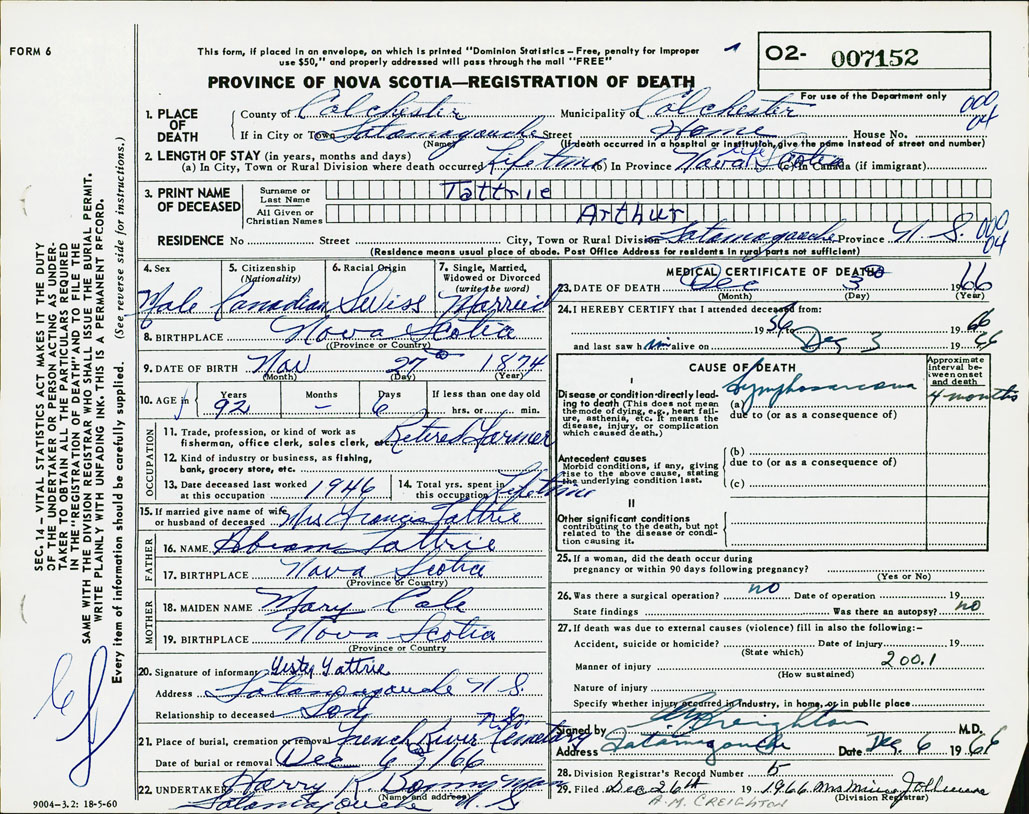 FORM 6
This form, if placed in an envelope, on which is printed "Dominion Statistics – Free, penalty for improper
use $50," and properly addressed will pass through the mail "FREE"
PROVINCE OF NOVA SCOTIA—REGISTRATION OF DEATH
02- 007152
For use of the Department only
1. PLACE OF DEATH
County of Colchester Municipality of Colchester 000 04
If in City or Town Tatamagouche Street Home House No.
(Name) (If death occurred in a hospital or institution, give the name instead of street and number)
2. LENGTH OF STAY (in years, months and days)
(a) In City, Town or Rural Division where death occurred Lifetime (b) In Province Nova Scotia (c) In Canada (if immigrant)
3. PRINT NAME OF DECEASED
Surname or Last Name Tattrie
All Given or Christian Names Arthur
RESIDENCE No Street City, Town or Rural Division Tatamagouche Province N.S. 000 04
(Residence means usual place of abode. Post Office Address for residents in rural parts not sufficient)
4. Sex Male
5. Citizenship (Nationality) Canadian
6. Racial Origin Swiss
7. Single, Married, Widowed or Divorced (write the word) Married
8. BIRTHPLACE Nova Scotia
(Province or Country)
9. DATE OF BIRTH Nov 27 1874
(Month) (Day) (Year)
10. AGE in Years 92 Months – Days 6 If less than one day old hrs. or min.
OCCUPATION
11. Trade, profession, or kind of work as fisherman, office clerk, sales clerk, etc. Retired Farmer
12. Kind of industry or business, as fishing, bank, grocery store, etc.
13. Date deceased last worked at this occupation 1946
14. Total yrs. spent in this occupation Lifetime
15. If married give name of wife or husband of deceased Mrs Francis Tattrie
FATHER
16. NAME Abram Tattrie
17. BIRTHPLACE Nova Scotia
(Province or Country)
MOTHER
18. MAIDEN NAME Mary Cole
19. BIRTHPLACE Nova Scotia
(Province or Country)
20. Signature of informant Tattrie
Address Tatamagouche N.S.
Relationship to deceased Son
21. Place of burial, cremation or removal French River Cemetary N.S.
Date of burial or removal Dec 6 /66
22. UNDERTAKER Harry R. Bonnyman
(Name and address)
Tatamagouche N.S
MEDICAL CERTIFICATE OF DEATH
23. DATE OF DEATH Dec 3 1966
(Month) (Day) (Year)
24. I HEREBY CERTIFY that I attended deceased from:
1956 to Dec 3 1966
and last saw him alive on 1966
CAUSE OF DEATH
Approximate interval between onset and death
I
Disease or condition directly leading to death (This does not mean the mode of dying, e.g., heart failure, asthenia, etc. It means the disease, injury, or complication which caused death.)
(a) Lymphosarcoma 4 months
due to (or as a consequence of)
Antecedent causes
Morbid conditions, if any, giving rise to the above cause, stating the underlying condition last.
(b)
due to (or as a consequence of)
(c)
II
Other significant conditions
contributing to the death, but not related to the disease or condition causing it.
25. If a woman, did the death occur during
pregnancy or within 90 days following pregnancy?
(Yes or No)
26. Was there a surgical operation? no Date of operation 19
State findings Was there an autopsy? no
27. If death was due to external causes (violence) fill in also the following:–
Accident, suicide or homicide? Date of injury 19
(State which)
Manner of injury 200.1
(How sustained)
Nature of injury
Specify whether injury occurred in industry, in home, or in public place
Signed by Creighton M.D.
Address Tatamagouche Date Dec 6 1966
28. Division Registrar's Record Number 5
29. Filed Dec 26th 19 1966 Mrs
(Division Registrar)
A.M. CREIGHTON
SEC. 14 – VITAL STATISTICS ACT MAKES IT THE DUTY
OF THE UNDERTAKER OR PERSON ACTING AS UNDER-
TAKER TO OBTAIN ALL THE PARTICULARS REQUIRED
IN THE "REGISTRATION OF DEATH" AND TO FILE THE
SAME WITH THE DIVISION REGISTRAR WHO SHALL ISSUE THE BURIAL PERMIT.
WRITE PLAINLY WITH UNFADING INK. THIS IS A PERMANENT RECORD.
Every item of information should be carefully supplied. (See reverse side for instructions.)
9004–3.2: 18-5-60